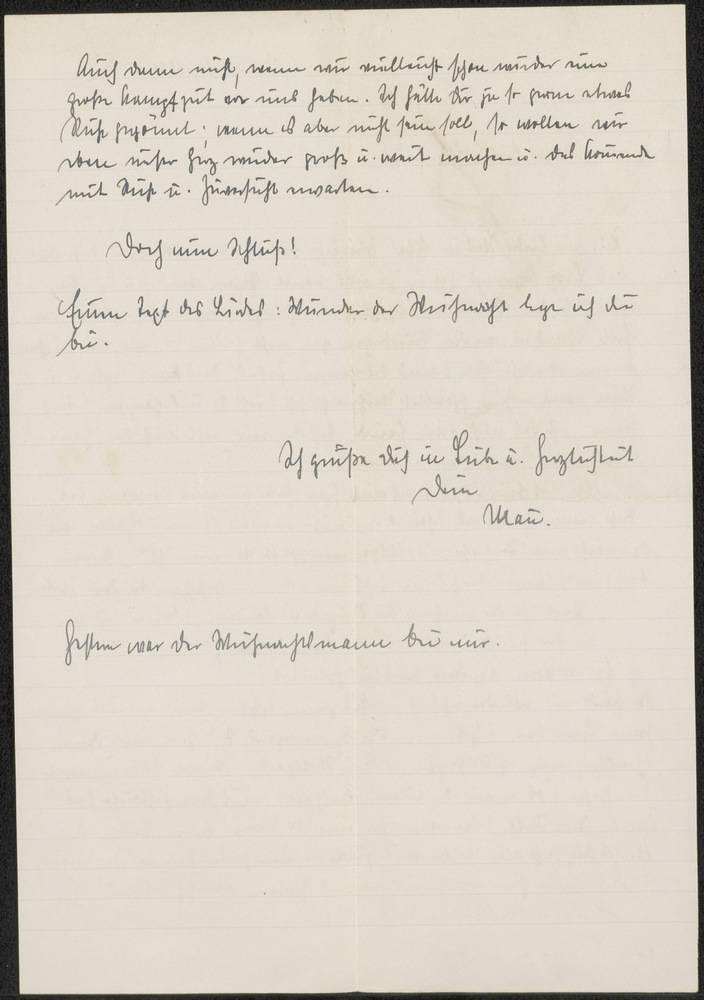 Auch dann nicht, wenn wir vielleicht schon wieder eine
große Kampfzeit vor uns haben. Ich hätte Dir ja so gerne etwas
Ruhe gegönnt; wenn es aber nicht sein soll, so wollen wir
eben unser Herz wieder groß u. weit machen u. das Kommende
mit Ruhe u. Zuversicht erwarten.
Doch nun Schluß!
Einen Text des Liedes: Wunder der Weihnacht lege ich Dir
bei.
Ich grüße Dich in Liebe u. Herzlichkeit
Dein
Gestern war der Weihnachtsmann bei mir.